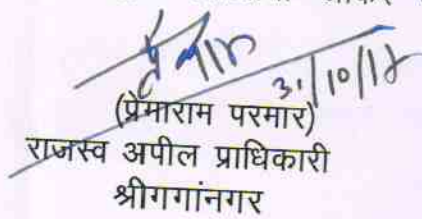 31/10/18
(प्रेमाराम परमार)
राजस्व अपील प्राधिकारी
श्रीगगांनगर